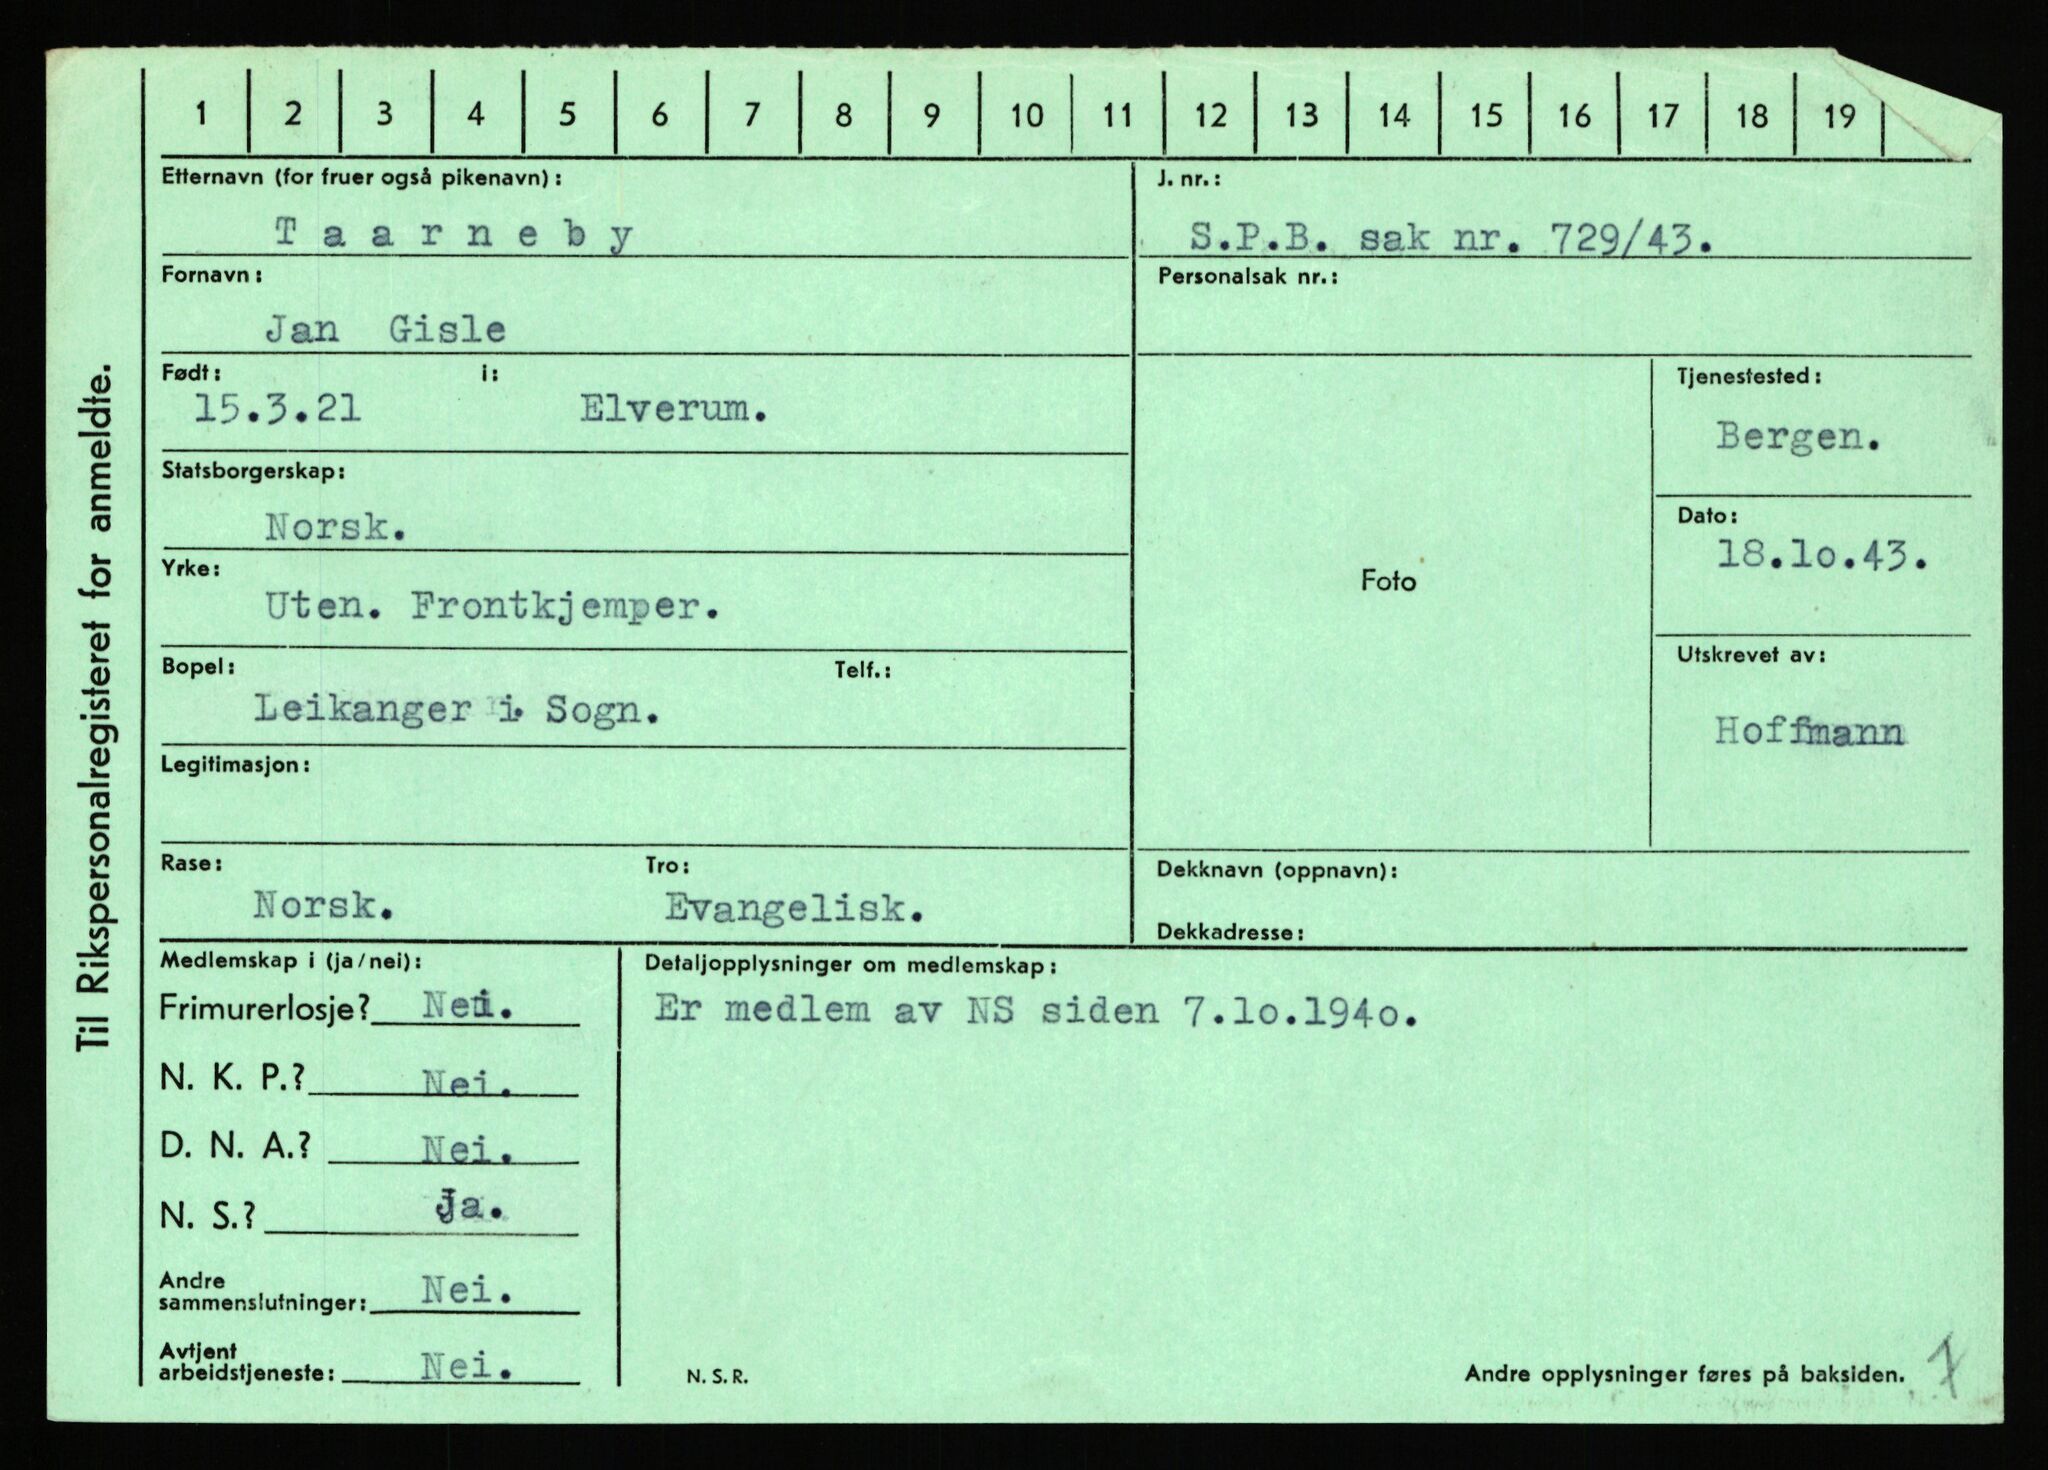 Til Rikspersonalregisteret for anmeldte.
1 2 3 4 5 6 7 8 9 10 11 12 13 14 15 16 17 18 19
Etternavn (for fruer også pikenavn):
Taarneby
J. nr.:
S.P.B. sak nr. 729/43.
Fornavn:
Jan Gisle
Personalsak nr.:
Født: i:
15.3.21 Elverum.
Statsborgerskap:
Norsk.
Yrke:
Uten. Frontkjemper.
Bopel: Telf.:
Leikanger i Sogn.
Legitimasjon:
Rase: Tro:
Norsk. Evangelisk.
Foto
Tjenestested:
Bergen.
Dato:
18.1o.43.
Utskrevet av:
Hoffmann
Dekknavn (oppnavn):
Dekkadresse:
Medlemskap i (ja/nei):
Frimurerlosje? Nei.
N. K. P.? Nei.
D. N. A.? Nei.
N. S.? Ja.
Andre
sammenslutninger: Nei.
Avtjent
arbeidstjeneste: Nei.
Detaljopplysninger om medlemskap:
Er medlem av NS siden 7.1o.194o.
N. S. R.
Andre opplysninger føres på baksiden.
7